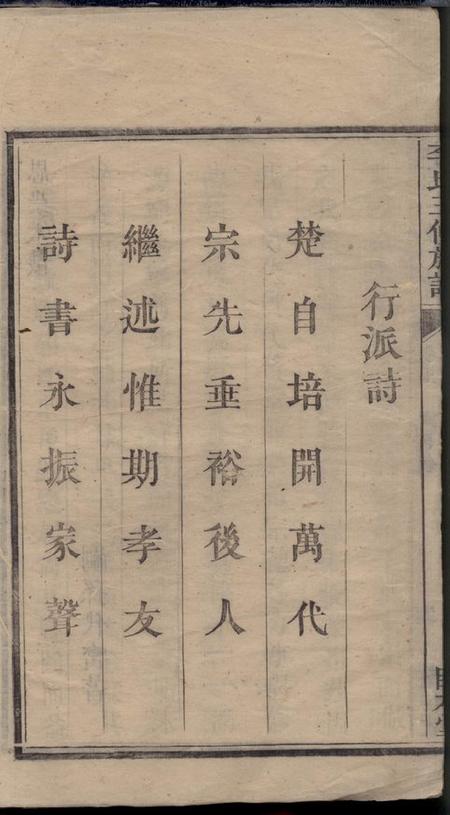 李氏三修族譜
行派詩
楚自培開萬代
宗先垂裕後人
繼述惟期孝友
詩書永振家聲